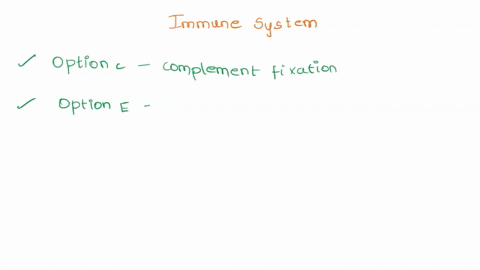 Immune System
✓ Option c - complement fixation
✓ Option E -